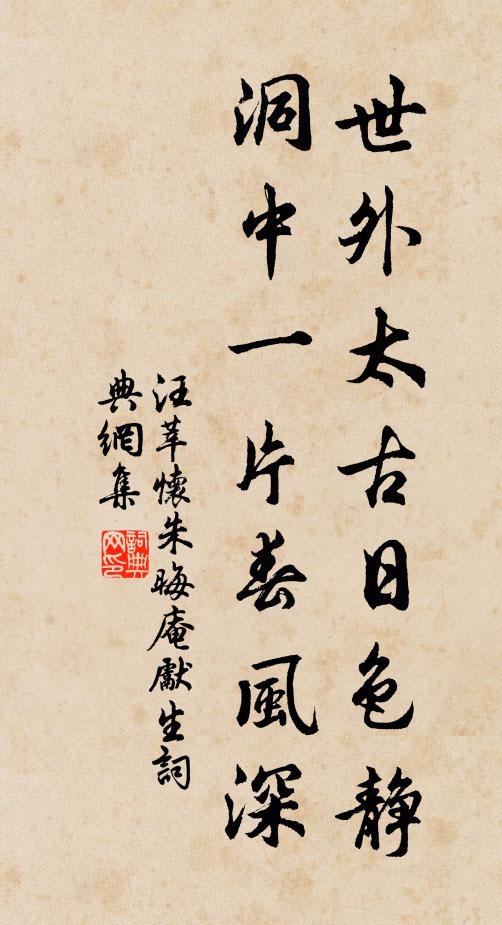 世外太古日色静
洞中一片春風深
汪莘懷朱晦庵獻生詞
典網集
詞典网印